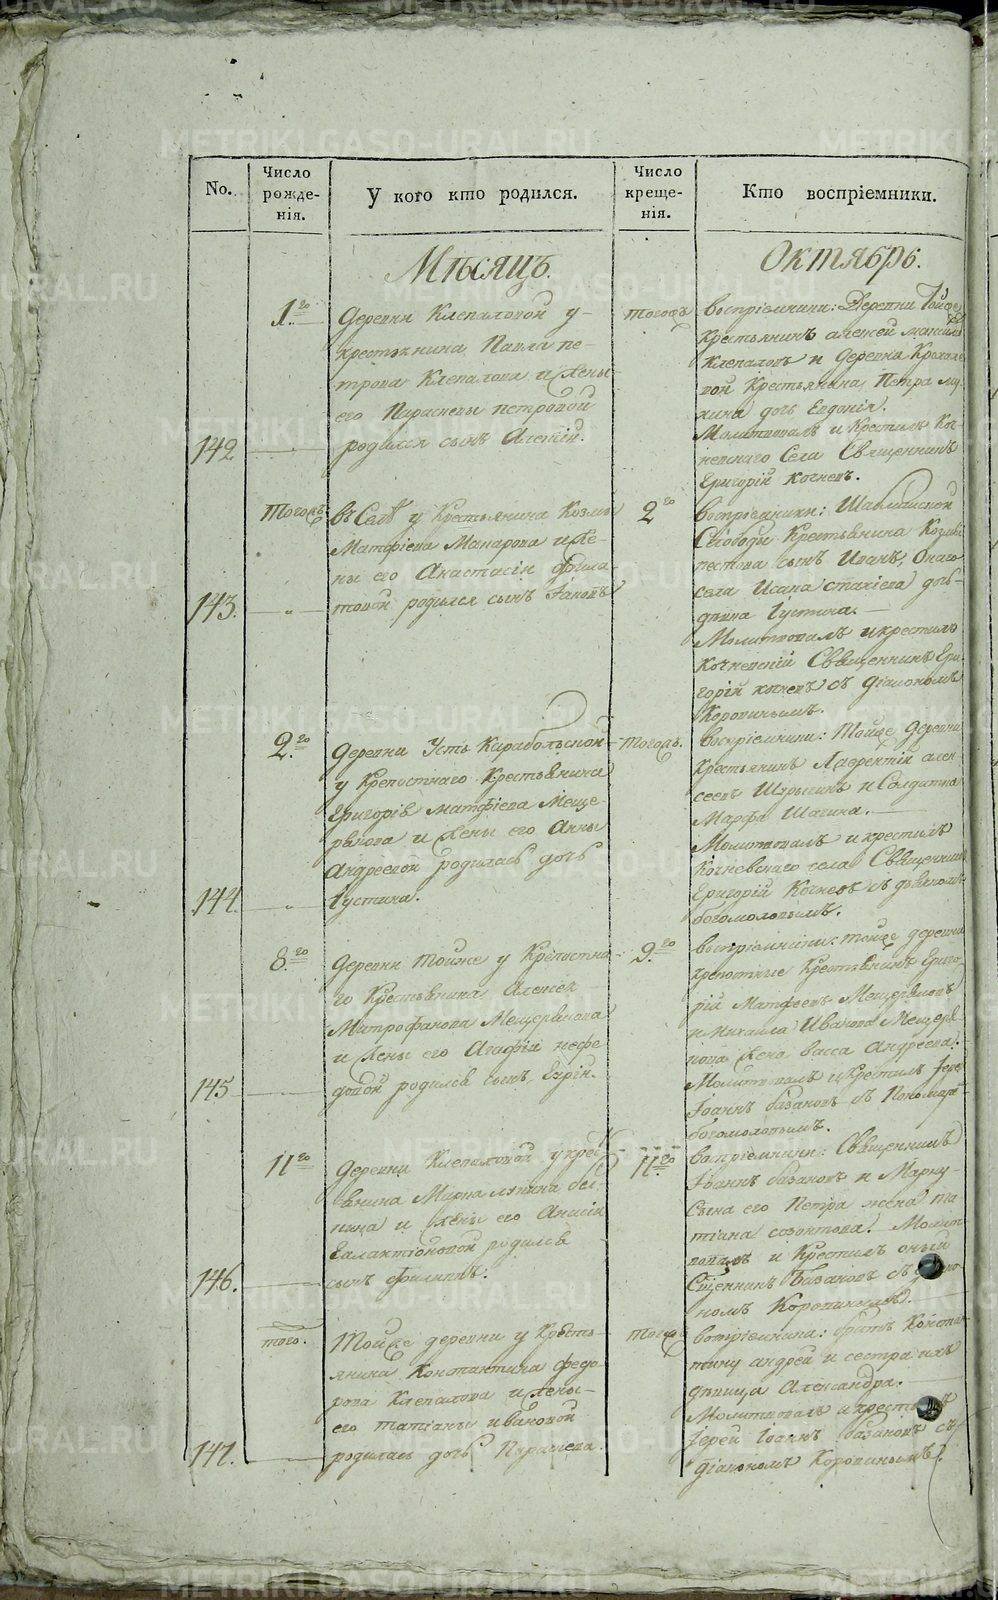 METRIKI.GASO-URAL.RU
No.
Число рожде-нія.
У кого кто родился.
Число креще-нія.
Кто воспріемники.
Мѣсяцъ
Октябрь.
142
1.го
Деревни Клепаловой у
крестьянина Павла пе-
трова Клепалова и жены
его Парасковы петровой
родился сынъ Алексій.
тогожъ
воспріемники: Деревни Тойже
Крестьянинъ алексей
Клепаловъ и деревни
вой Крестьянина Петра
дочь Евдокія.
Молитвовалъ и крестилъ Коч-
невскаго Села Священникъ
Григорій Кочневъ.
143.
Тогожъ
въ Селѣ у Крестьянина Козмы
Матфіева Макарова и же-
ны его Анастасіи
родился сынъ Іаковъ
2го
воспріемники:
Слободы Крестьянина
сынъ Иванъ, Онаго
села Исака дочь
дѣвица Іустина.
Молитвовалъ и крестилъ
Кочневскій Священникъ Гри-
горій Кочневъ съ діакономъ
Коровинымъ.
144.
2.го
Деревни Усть Карабольской
у Крепостнаго Крестьянина
Григорія матфіева Меще-
рякова и жены его Анны
Андреевой родилась дочь
Іустина.
тогожъ.
воспріемники: Тойже деревни
Крестьянинъ Лаврентій алек-
сеевъ и Солдатка
Марфа Шагина.
Молитвовалъ и крестилъ
Кочневскаго села Священникъ
Григорій Кочневъ съ дьячкомъ
богомоловымъ.
145
8.го
Деревни тойже у Крепостна-
го Крестьянина Алексея
Митрофанова Мещерякова
и жены его Агафіи нефе
довой родился сынъ
9.го
воспріемники: тойже деревни
крепостные Крестьянинъ Григо-
рій Матфеевъ Мещеряковъ
и Михаила Иванова Мещеря
кова жена васса Андреева.
Молитвовалъ и крестилъ Іерей
Іоаннъ базановъ съ Пономаремъ
богомоловымъ.
146.
11го
Деревни Клепаловой у крест
ьянина Марка
и жены его Анисіи
Галактіоновой родился
сынъ филиппъ.
11.го
воспріемники: Священникъ
Іоаннъ базановъ и Марку-
сына его Петра жена та
тіана созонтова. Молит
вовалъ и Крестилъ оный
Сщенникъ Базановъ съ діако-
номъ Коровинымъ.
147.
того.
Тойже деревни у Кресть-
янина Константина федо-
рова Клепалова и жены
его татіаны ивановой
родилась дочь Параскева.
тогожъ
воспріемники: братъ Констан-
тину андрей и сестра ихъ
дѣвица Александра.
Молитвовалъ и крестилъ
Іерей Іоаннъ базановъ съ
діакономъ Коровинымъ.